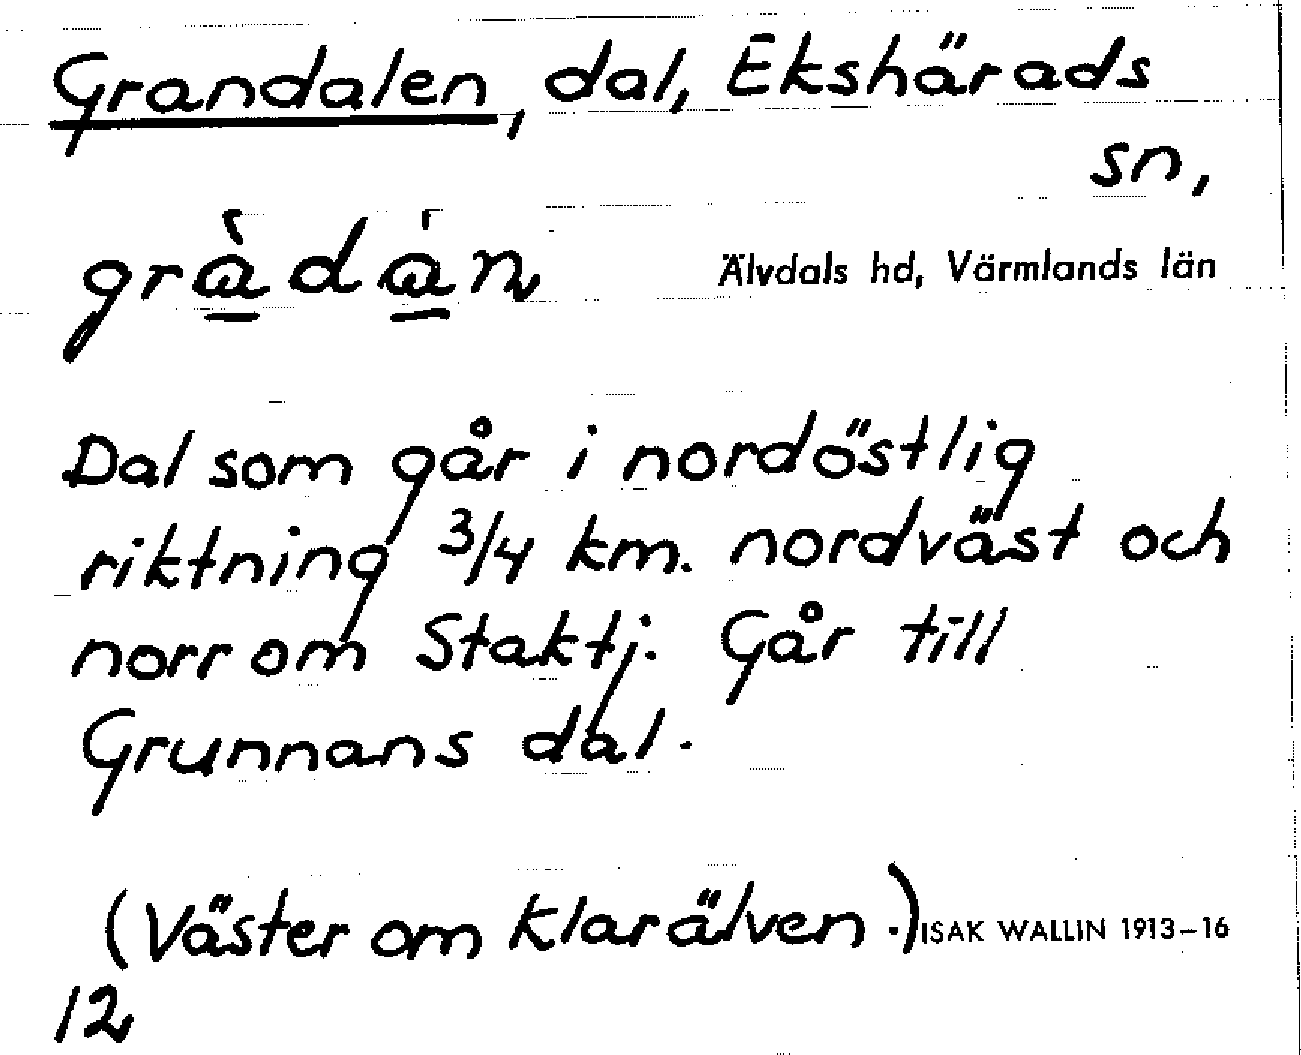 Grandalen, dal, Ekshärads
sn,
gràdán Älvdals hd, Värmlands län
Dal som går i nordöstlig
riktning 3/4 km. nordväst och
norr om Staktj. Går till
Grunnans dal.
(Väster om Klarälven.) ISAK WALLIN 1913–16
12